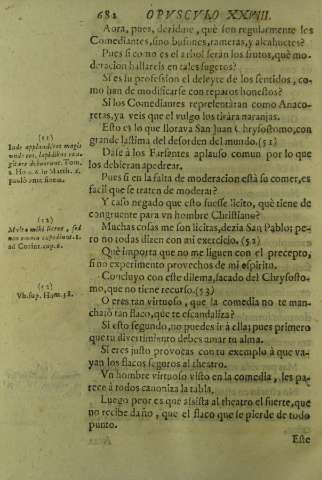 682 OPVSCVLO XXVIII.
Aora, pues, dezidme, què son regularmente los
Comediantes, sino bufones, rameras, y alcahuetes?
Pues si como es el arbol serán los frutos, què mo-
deracion hallareis en tales sugetos?
Si es su profession el deleyte de los sentidos, co-
mo han de modificarse con reparos honestos?
Si los Comediantes representàran como Anaco-
retas, ya veis que el vulgo los tirára naranjas.
Esto es lo que llorava San Juan Chrysostomo, con
grande lastima del desorden del mundo. (51)
Dase à los Farsantes aplauso comun por lo que
los debieran apedrear.
Pues si en la falta de moderacion està su comer, es
facil que se traten de moderar?
Y caso negado que esto fuesse licito, què tiene de
congruente para vn hombre Christiano?
Muchas cosas me son licitas, dezia San Pablo; pe-
ro no todas dizen con mi exercicio. (52)
Què importa que no me liguen con el precepto,
si no experimento provechos de mi espiritu.
Concluyo con este dilema, sacado del Chrysosto-
mo, que no tiene recurso. (53)
O eres tan virtuoso, que la comedia no te man-
cha, ò tan flaco, que te escandaliza?
Si esto segundo, no puedes ir à ella; pues primero
que tu divertimiento debes amar tu alma.
Si eres justo provocas con tu exemplo à que va-
yan los flacos seguros al theatro.
Vn hombre virtuoso visto en la comedia, les pa-
rece à todos canoniza la tabla.
Luego peor es que assista al theatro el fuerte, que
no recibe daño, que el flaco que se pierde de todo
punto.
Este
(51)
Inde applauditis magis
unde eos, lapidibus
deberent. Tom.
2. Hom. in Matth.
paulò ante finem.
(52)
Multa mihi licent, sed
non omnia expediunt. 1.
ad Corint. cap. 6.
(53)
Vb. sup. Hom. 38.